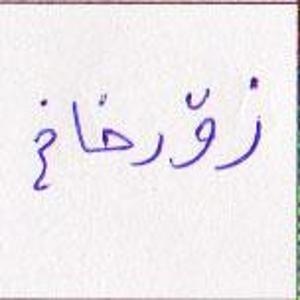 زۆرخاخ